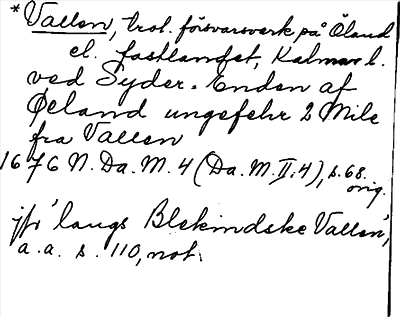 * Vallen, trol. försvarsverk på Öland
el. fastlandet, Kalmar l.
ved Syder-Enden af
Øeland ungefehr 2 Mile
fra Vallen
1676 N. Da. M. 4 (Da. M. II. 4), s. 68.
orig.
jfr 'langs Blekindske Vallen',
a. a. s. 110, not.